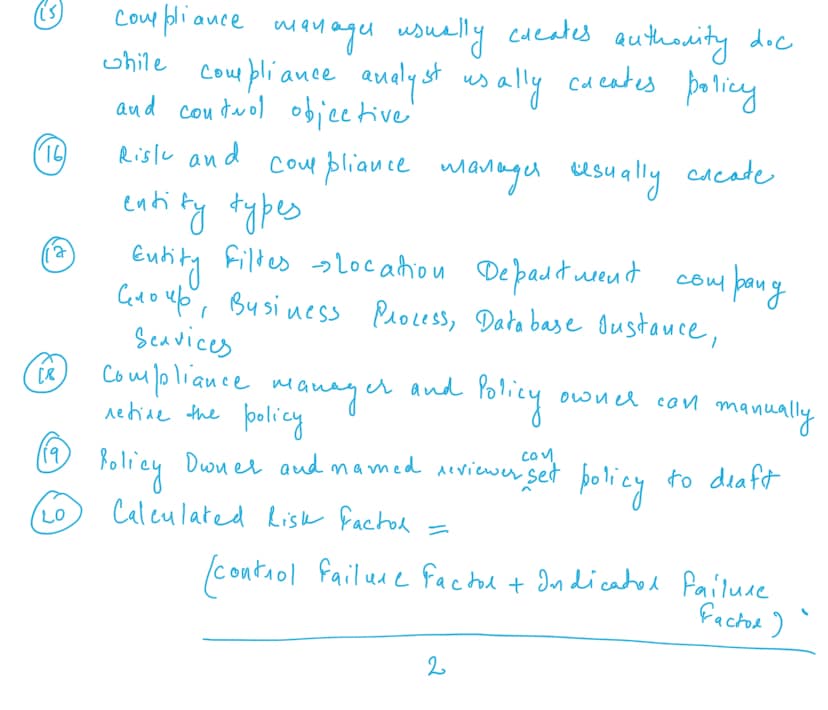 (15) compliance manager usually creates authority doc
while compliance analyst usally creates policy
and control objective
(16) Risk and compliance manager usually create
entity types
(17) Entity Filtes → Location Department company
Group, Business Process, Database Instance,
Services
(18) Compliance manager and Policy owner can manually
retire the policy
(19) Policy Owner and named reviewer can set policy to draft
(20) Calculated Risk Factor =
(control Failure Factor + Indicator Failure
Factor)
2